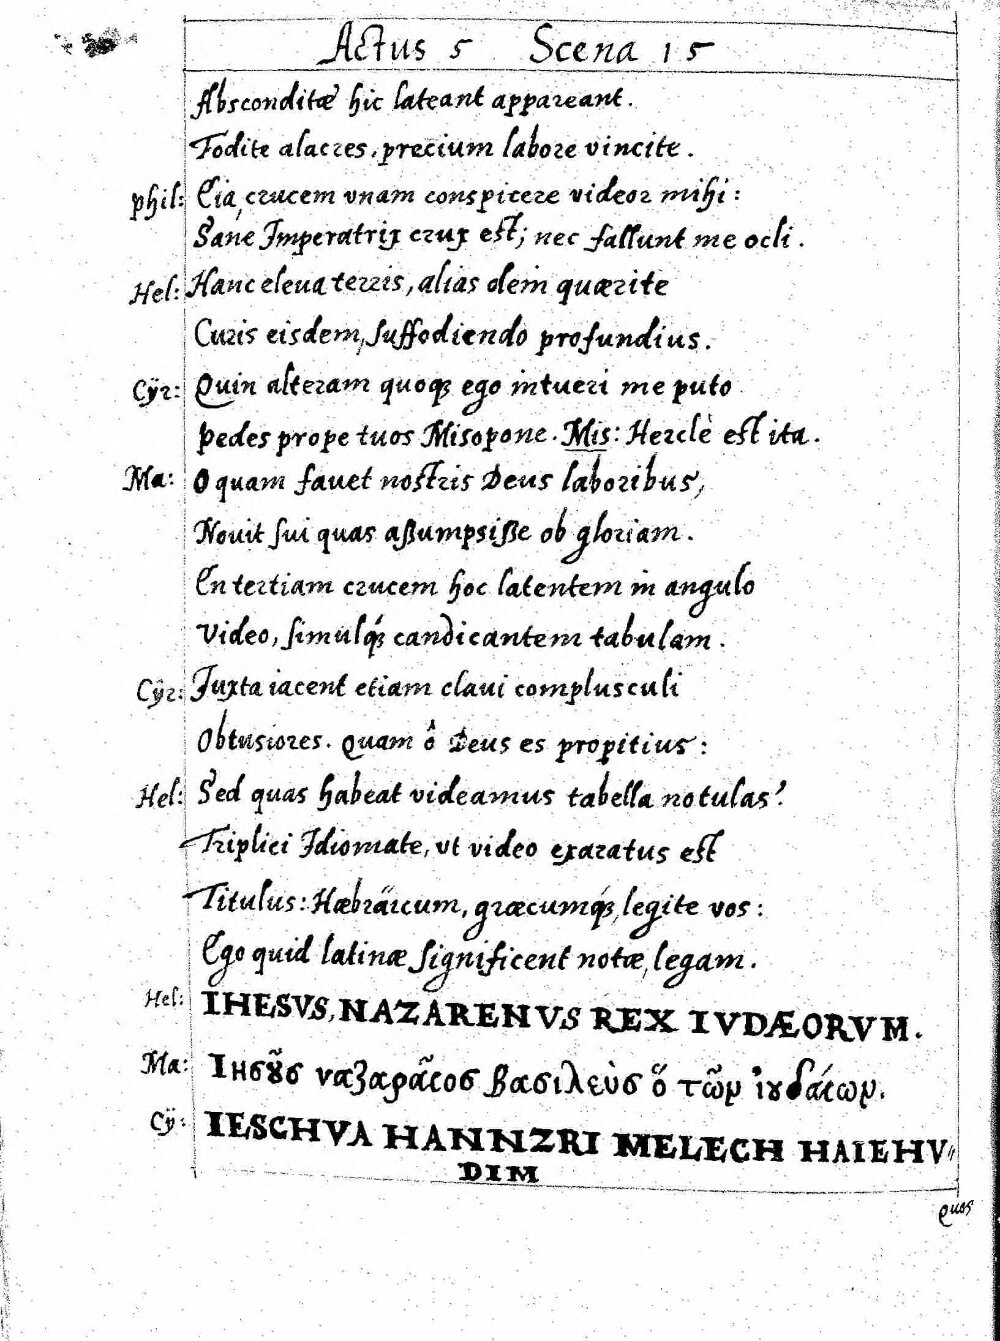 Actus 5 Scena 15
Absconditæ hic lateant appareant.
Fodite alacres, precium labore vincite.
Phil: Eia, crucem vnam conspicere videor mihi:
Sane Imperatrix crux est; nec fallunt me ocli.
Hel: Hanc eleua terris, alias olem quærite
Curis eisdem, suffodiendo profundius.
Cÿr: Quin alteram quoq; ego intueri me puto
pedes prope tuos Misopone. Mis: Herclè est ita.
Ma: O quam fauet nostris Deus laboribus,
Nouit sui quas aßumpsiße ob gloriam.
En tertiam crucem hoc latentem in angulo
Video, simulq́; candicantem tabulam.
Cÿr: Juxta iacent etiam claui complusculi
Obtusiores. Quam ô Deus es propitius:
Hel: Sed quas habeat videamus tabella notulas?
Triplici Idiomate, vt video exaratus est
Titulus: Hæbräicum, græcumq́;, legite vos:
Ego quid latinæ significent notæ, legam.
Hel: IHESVS, NAZARENVS REX IVDÆORVM.
Ma: Ιησȣ͂ς ναζαρᾶιος βασιλεὺσ ὅ τῶν ἰȣδάιων.
Cÿ: IESCHVA HANNZRI MELECH HAIEHV〃
DIM
Quas